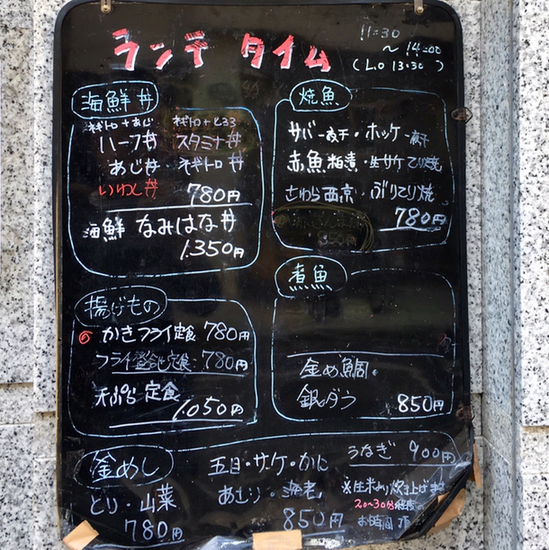 ランチ タイム
11:30
～ 14:00
(L.O 13:30)
海鮮丼
ネギトロ+あじ ネギトロ+とろろ
ハーフ丼 スタミナ丼
あじ丼・ネギトロ丼
いわし丼 780円
海鮮 なみはな丼
1.350円
焼魚
サバ一夜干・ホッケ一夜干
赤魚粕漬・生サケてり焼
さわら西京・ぶりてり焼
780円
揚げもの
かきフライ定食 780円
フライ盛合せ定食 780円
天ぷら定食
1.050円
煮魚
金め鯛
銀ダラ 850円
釜めし
とり・山菜
780円
五目・サケ・かに
あさり・海老
850円
うなぎ 900円
※注文あり炊き上げ
20～30分
お時間